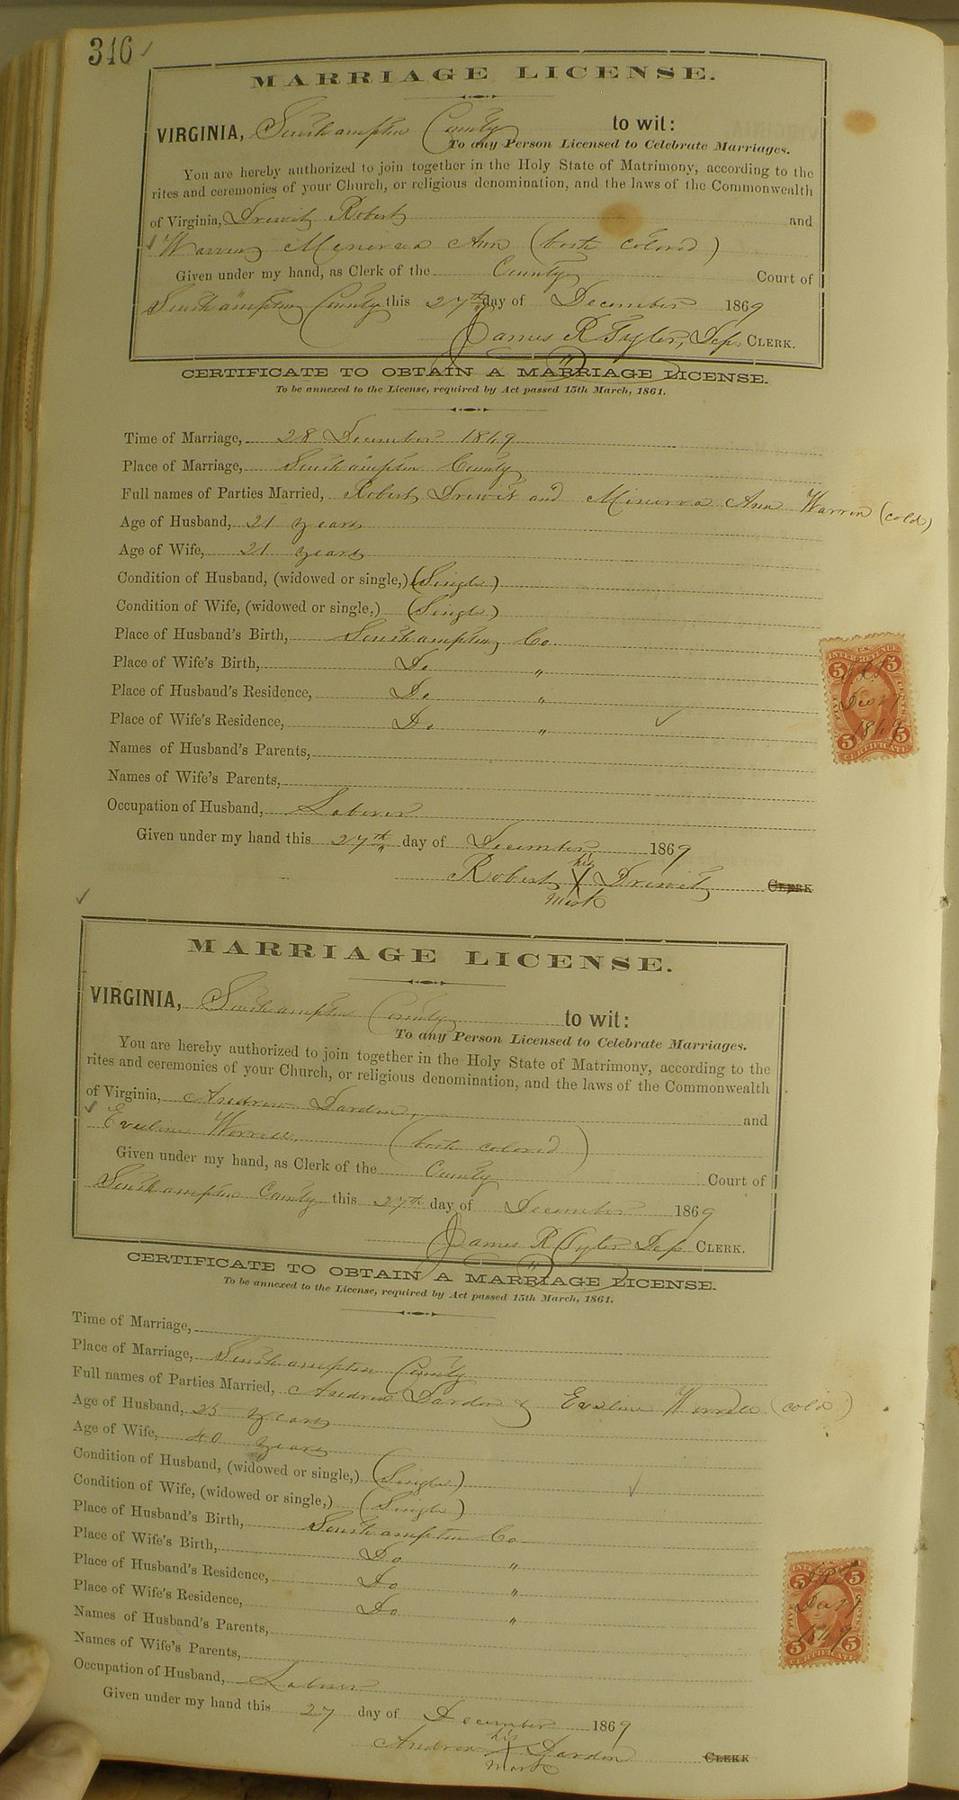 316
MARRIAGE LICENSE.
VIRGINIA, Southampton County to wit:
To any Person Licensed to Celebrate Marriages.
You are hereby authorized to join together in the Holy State of Matrimony, according to the
rites and ceremonies of your Church, or religious denomination, and the laws of the Commonwealth
of Virginia, Drewit Robert and
Warren Minerva Ann (both colored)
Given under my hand, as Clerk of the County Court of
Southampton County this 27th day of December 1869
James R Tyler, Dep. CLERK.
CERTIFICATE TO OBTAIN A MARRIAGE LICENSE.
To be annexed to the License, required by Act passed 15th March, 1861.
Time of Marriage, 28 December 1869
Place of Marriage, Southampton County
Full names of Parties Married, Robert Drewit and Minerva Ann Warren (cold)
Age of Husband, 21 years
Age of Wife, 21 years
Condition of Husband, (widowed or single,) (Single)
Condition of Wife, (widowed or single,) (Single)
Place of Husband's Birth, Southampton Co.
Place of Wife's Birth, Do "
Place of Husband's Residence, Do "
Place of Wife's Residence, Do "
Names of Husband's Parents,
Names of Wife's Parents,
Occupation of Husband, Laborer
Given under my hand this 27th day of December 1869
his
Robert X Drewit CLERK
mark
MARRIAGE LICENSE.
VIRGINIA, Southampton County to wit:
To any Person Licensed to Celebrate Marriages.
You are hereby authorized to join together in the Holy State of Matrimony, according to the
rites and ceremonies of your Church, or religious denomination, and the laws of the Commonwealth
of Virginia, Andrew Darden, and
Eveline Worrell (both colored)
Given under my hand, as Clerk of the County Court of
Southampton County this 27th day of December 1869
James R Tyler Dep. CLERK.
CERTIFICATE TO OBTAIN A MARRIAGE LICENSE.
To be annexed to the License, required by Act passed 15th March, 1861.
Time of Marriage,
Place of Marriage, Southampton County
Full names of Parties Married, Andrew Darden & Eveline Worrell (cold)
Age of Husband, 25 years
Age of Wife, 40 years
Condition of Husband, (widowed or single,) (Single)
Condition of Wife, (widowed or single,) (Single)
Place of Husband's Birth, Southampton Co
Place of Wife's Birth, Do "
Place of Husband's Residence, Do "
Place of Wife's Residence, Do "
Names of Husband's Parents,
Names of Wife's Parents,
Occupation of Husband, Laborer
Given under my hand this 27 day of December 1869
his
Andrew X Darden CLERK
mark
INTER. REVENUE
5 5
Dec 27
1869
5 5
CERTIFICATE
5 5
Dec 27
1869
5 5
CERTIFICATE